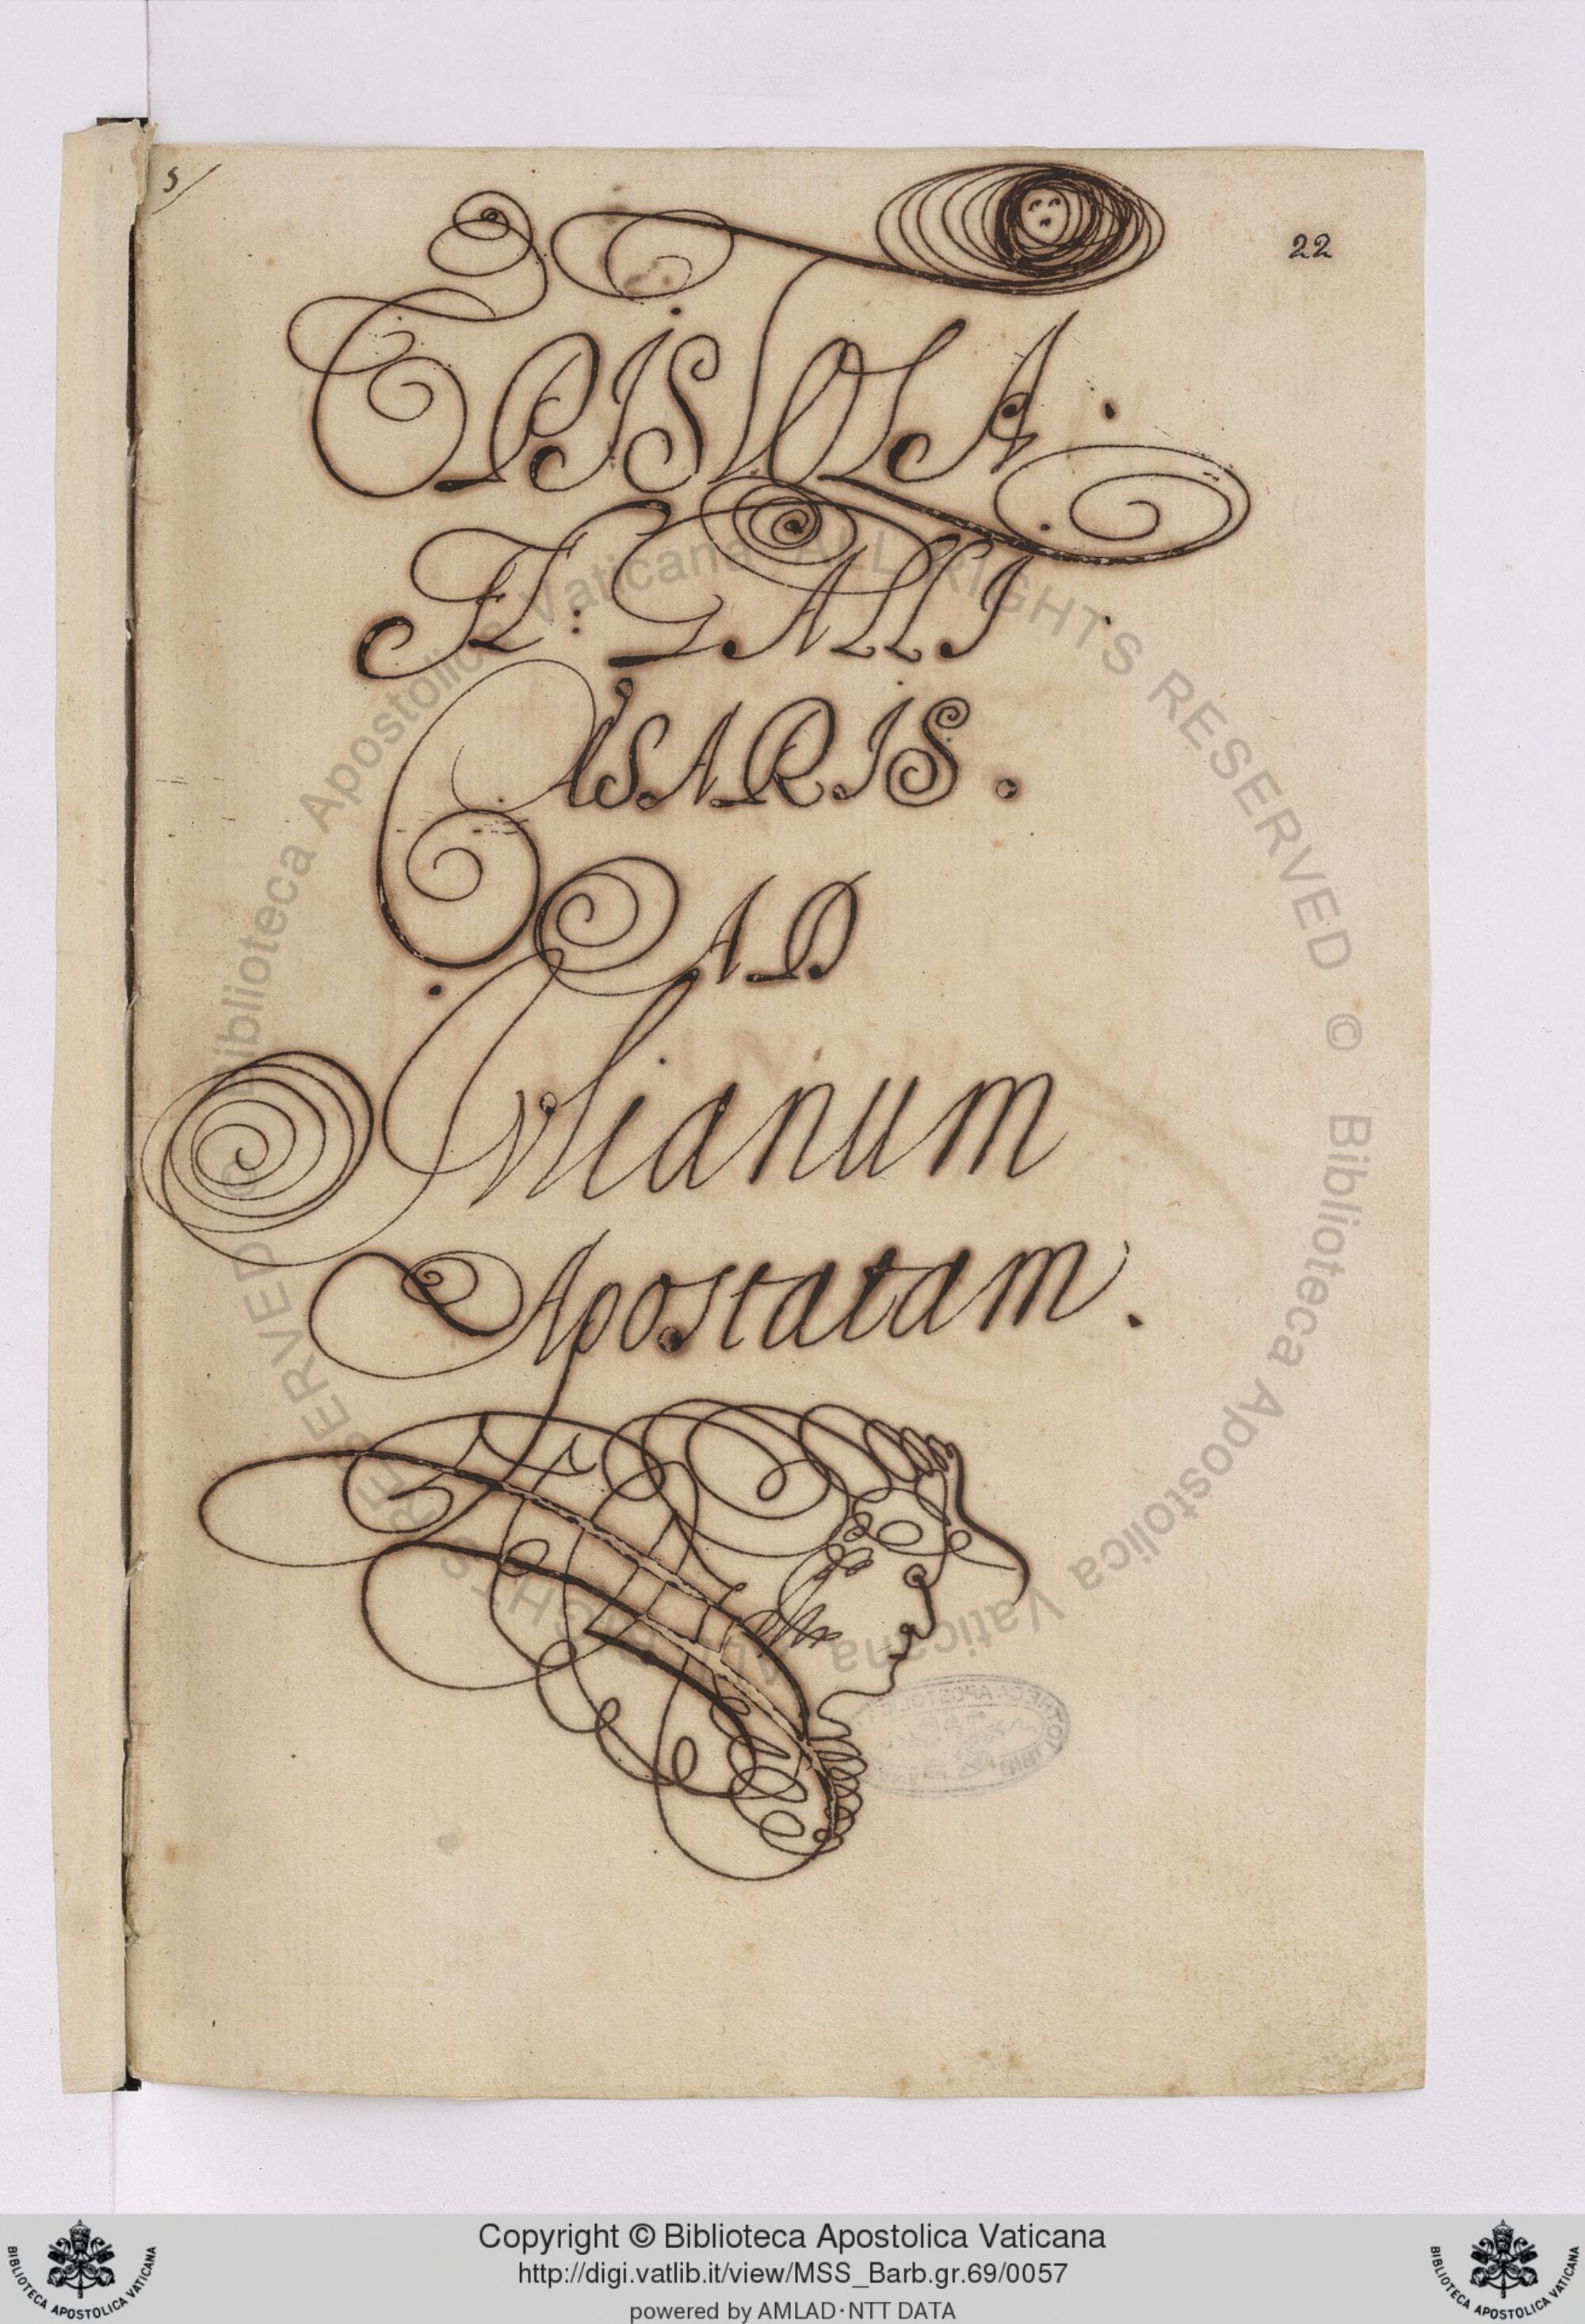 5/
22
EPISTOLA.
FL: GALLI
CÆSARIS.
AD
IVlianum
Apostatam.
© Biblioteca Apostolica Vaticana ALL RIGHTS RESERVED © Biblioteca Apostolica Vaticana ALL RIGHTS RESERVED
Copyright © Biblioteca Apostolica Vaticana
http://digi.vatlib.it/view/MSS_Barb.gr.69/0057
powered by AMLAD·NTT DATA
BIBLIOTECA APOSTOLICA VATICANA
BIBLIOTECA APOSTOLICA VATICANA